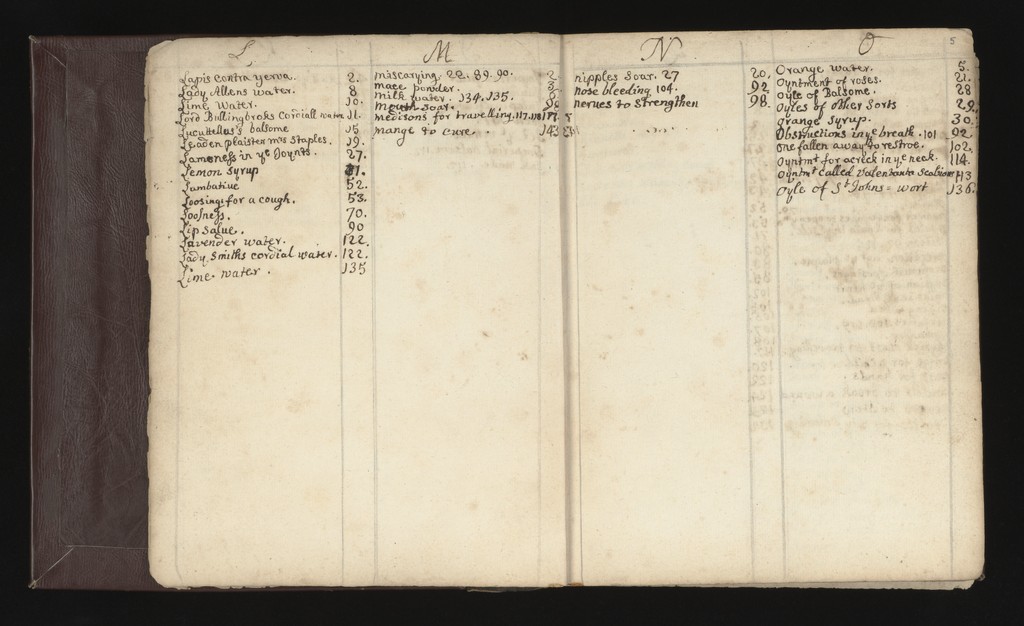 L
Lapis contra yerva. 2.
Lady Allens water. 8
Lime Water. 10.
Lord Bullingbroks Cordiall water 11.
Lucuttellus's balsome 15
Leaden plaister mrs Staples. 19.
Lameness in ye Joynts. 27.
Lemon Syrup 31.
Lambative 52.
Loosing for a cough. 53.
Loosness. 70.
Lip Salve. 90
Lavender water. 122.
Lady Smiths cordial water. 122.
Lime water. 135
M
miscarying 22. 89. 90. 2
mace powder. 3
milk water. 134. 135.
mouth Soar. 90
medisons for travelling. 117. 118
mange to cure. 143
N
nipples Soar. 27 20.
nose bleeding 104. 92
nerves to Strengthen 98.
O
5
Orange water. 5.
Oyntment of roses. 21.
Oyle of Balsome. 28
Oyles of other Sorts 29.
Orange Syrup. 30.
Obstructions in ye breath. 101 92
One fallen away to restroe. 102.
Oyntmt for a crick in ye neck. 114.
Oyntmt called Valentants Scabious 113
Oyle of St Johns=wort 136.